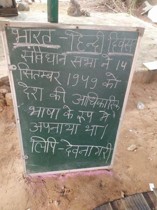 भारत - हिन्दी दिवस
संविधान सभा ने 14
सितम्बर 1949 को
देश की आधिकारिक
भाषा के रूप में
अपनाया था।
लिपि - देवनागरी